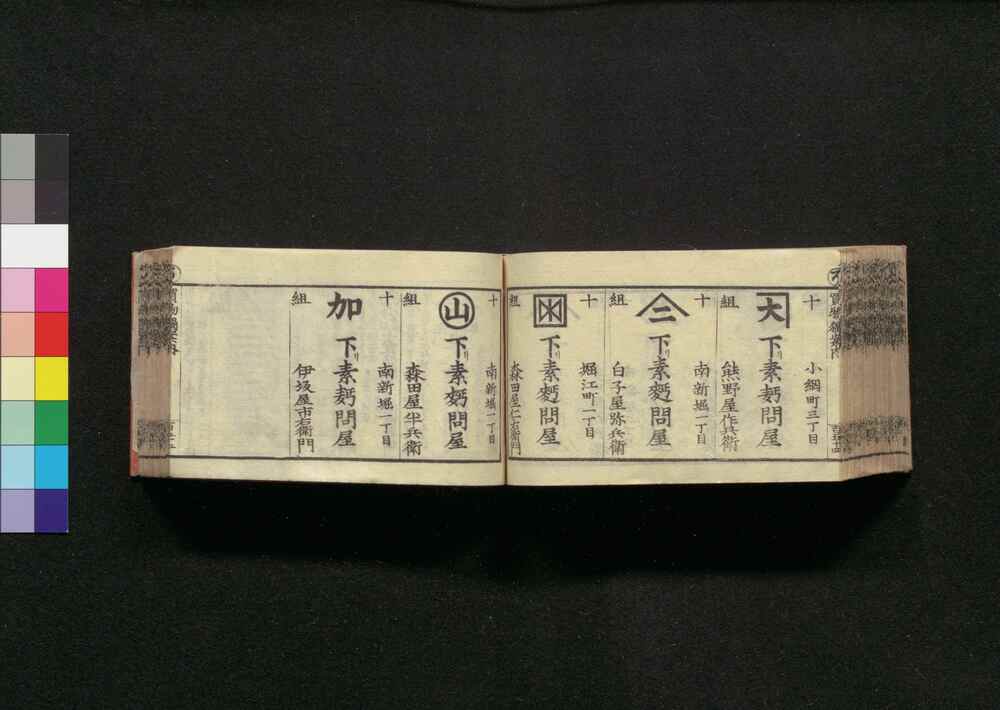 十
小網町三丁目
大
下リ素麪問屋
組
熊野屋作兵衛
十
南新堀一丁目
二
下リ素麪問屋
組
白子屋弥兵衛
十
堀江町一丁目
下リ素麪問屋
組
森田屋仁右衛門
十
南新堀一丁目
山
下リ素麪問屋
組
森田屋半兵衛
十
南新堀一丁目
加
下リ素麪問屋
組
伊坂屋市右衛門